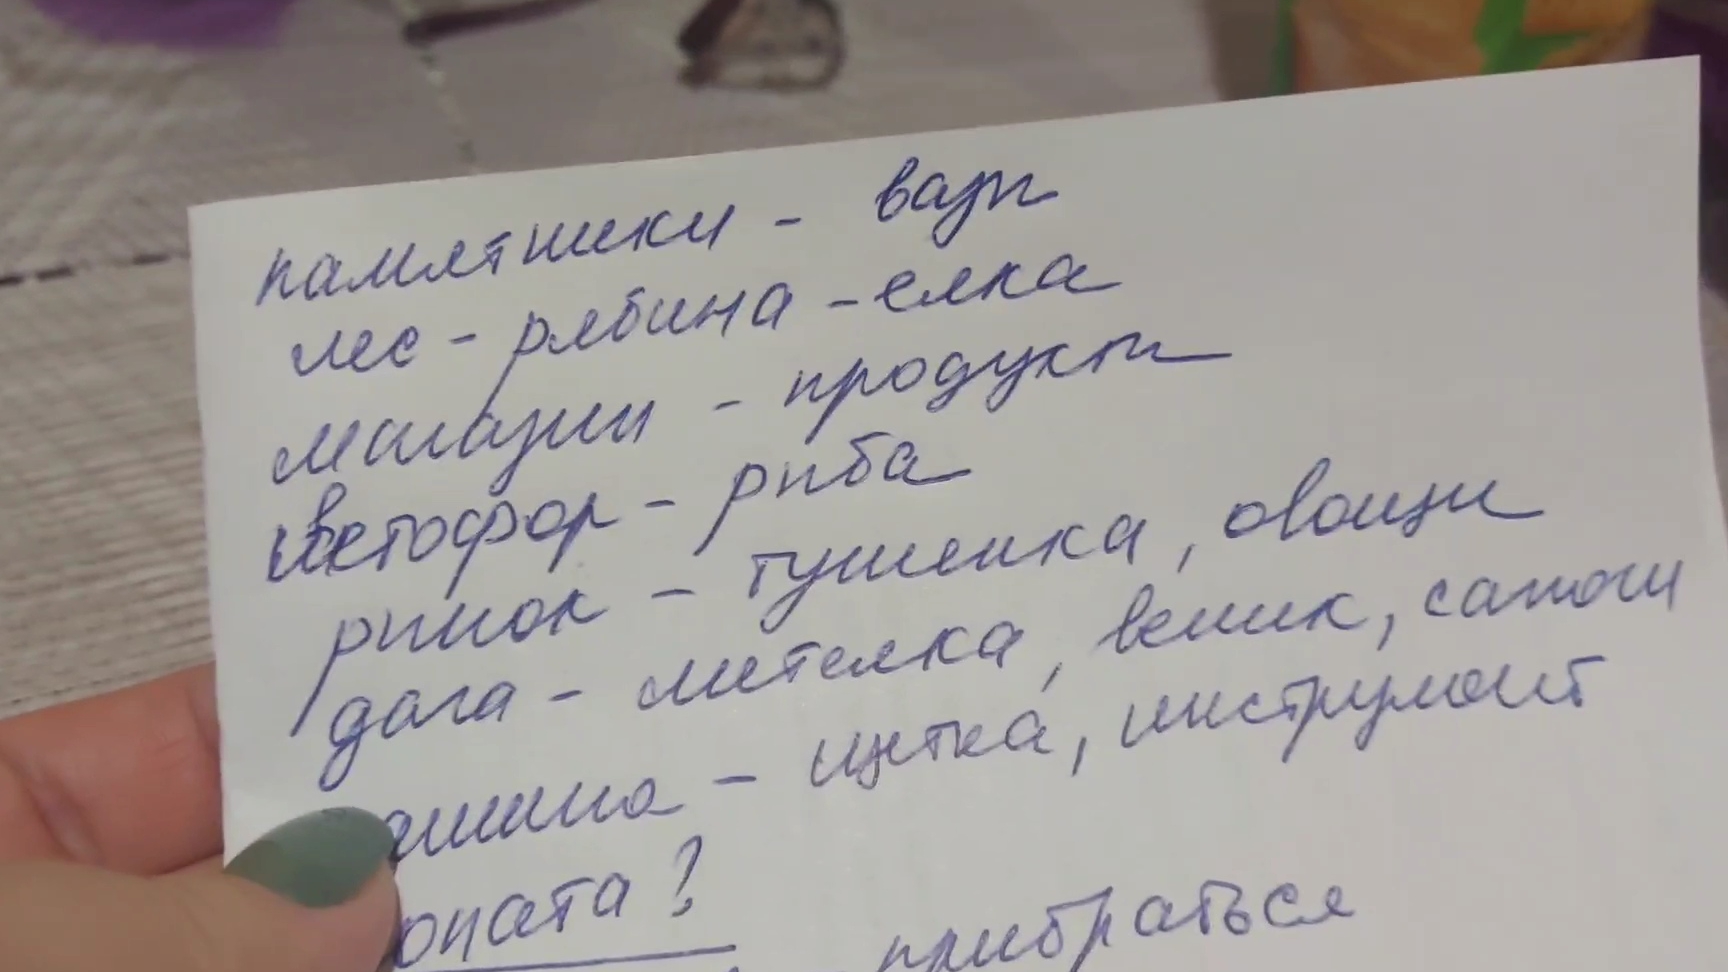 памятники - вазы
лес - рябина - елка
магазин - продукты
светофор - рыба
рынок - тушенка, овощи
дача - метелка, веник, сапоги
ашина - щетка, инструмент
опата?
прибраться